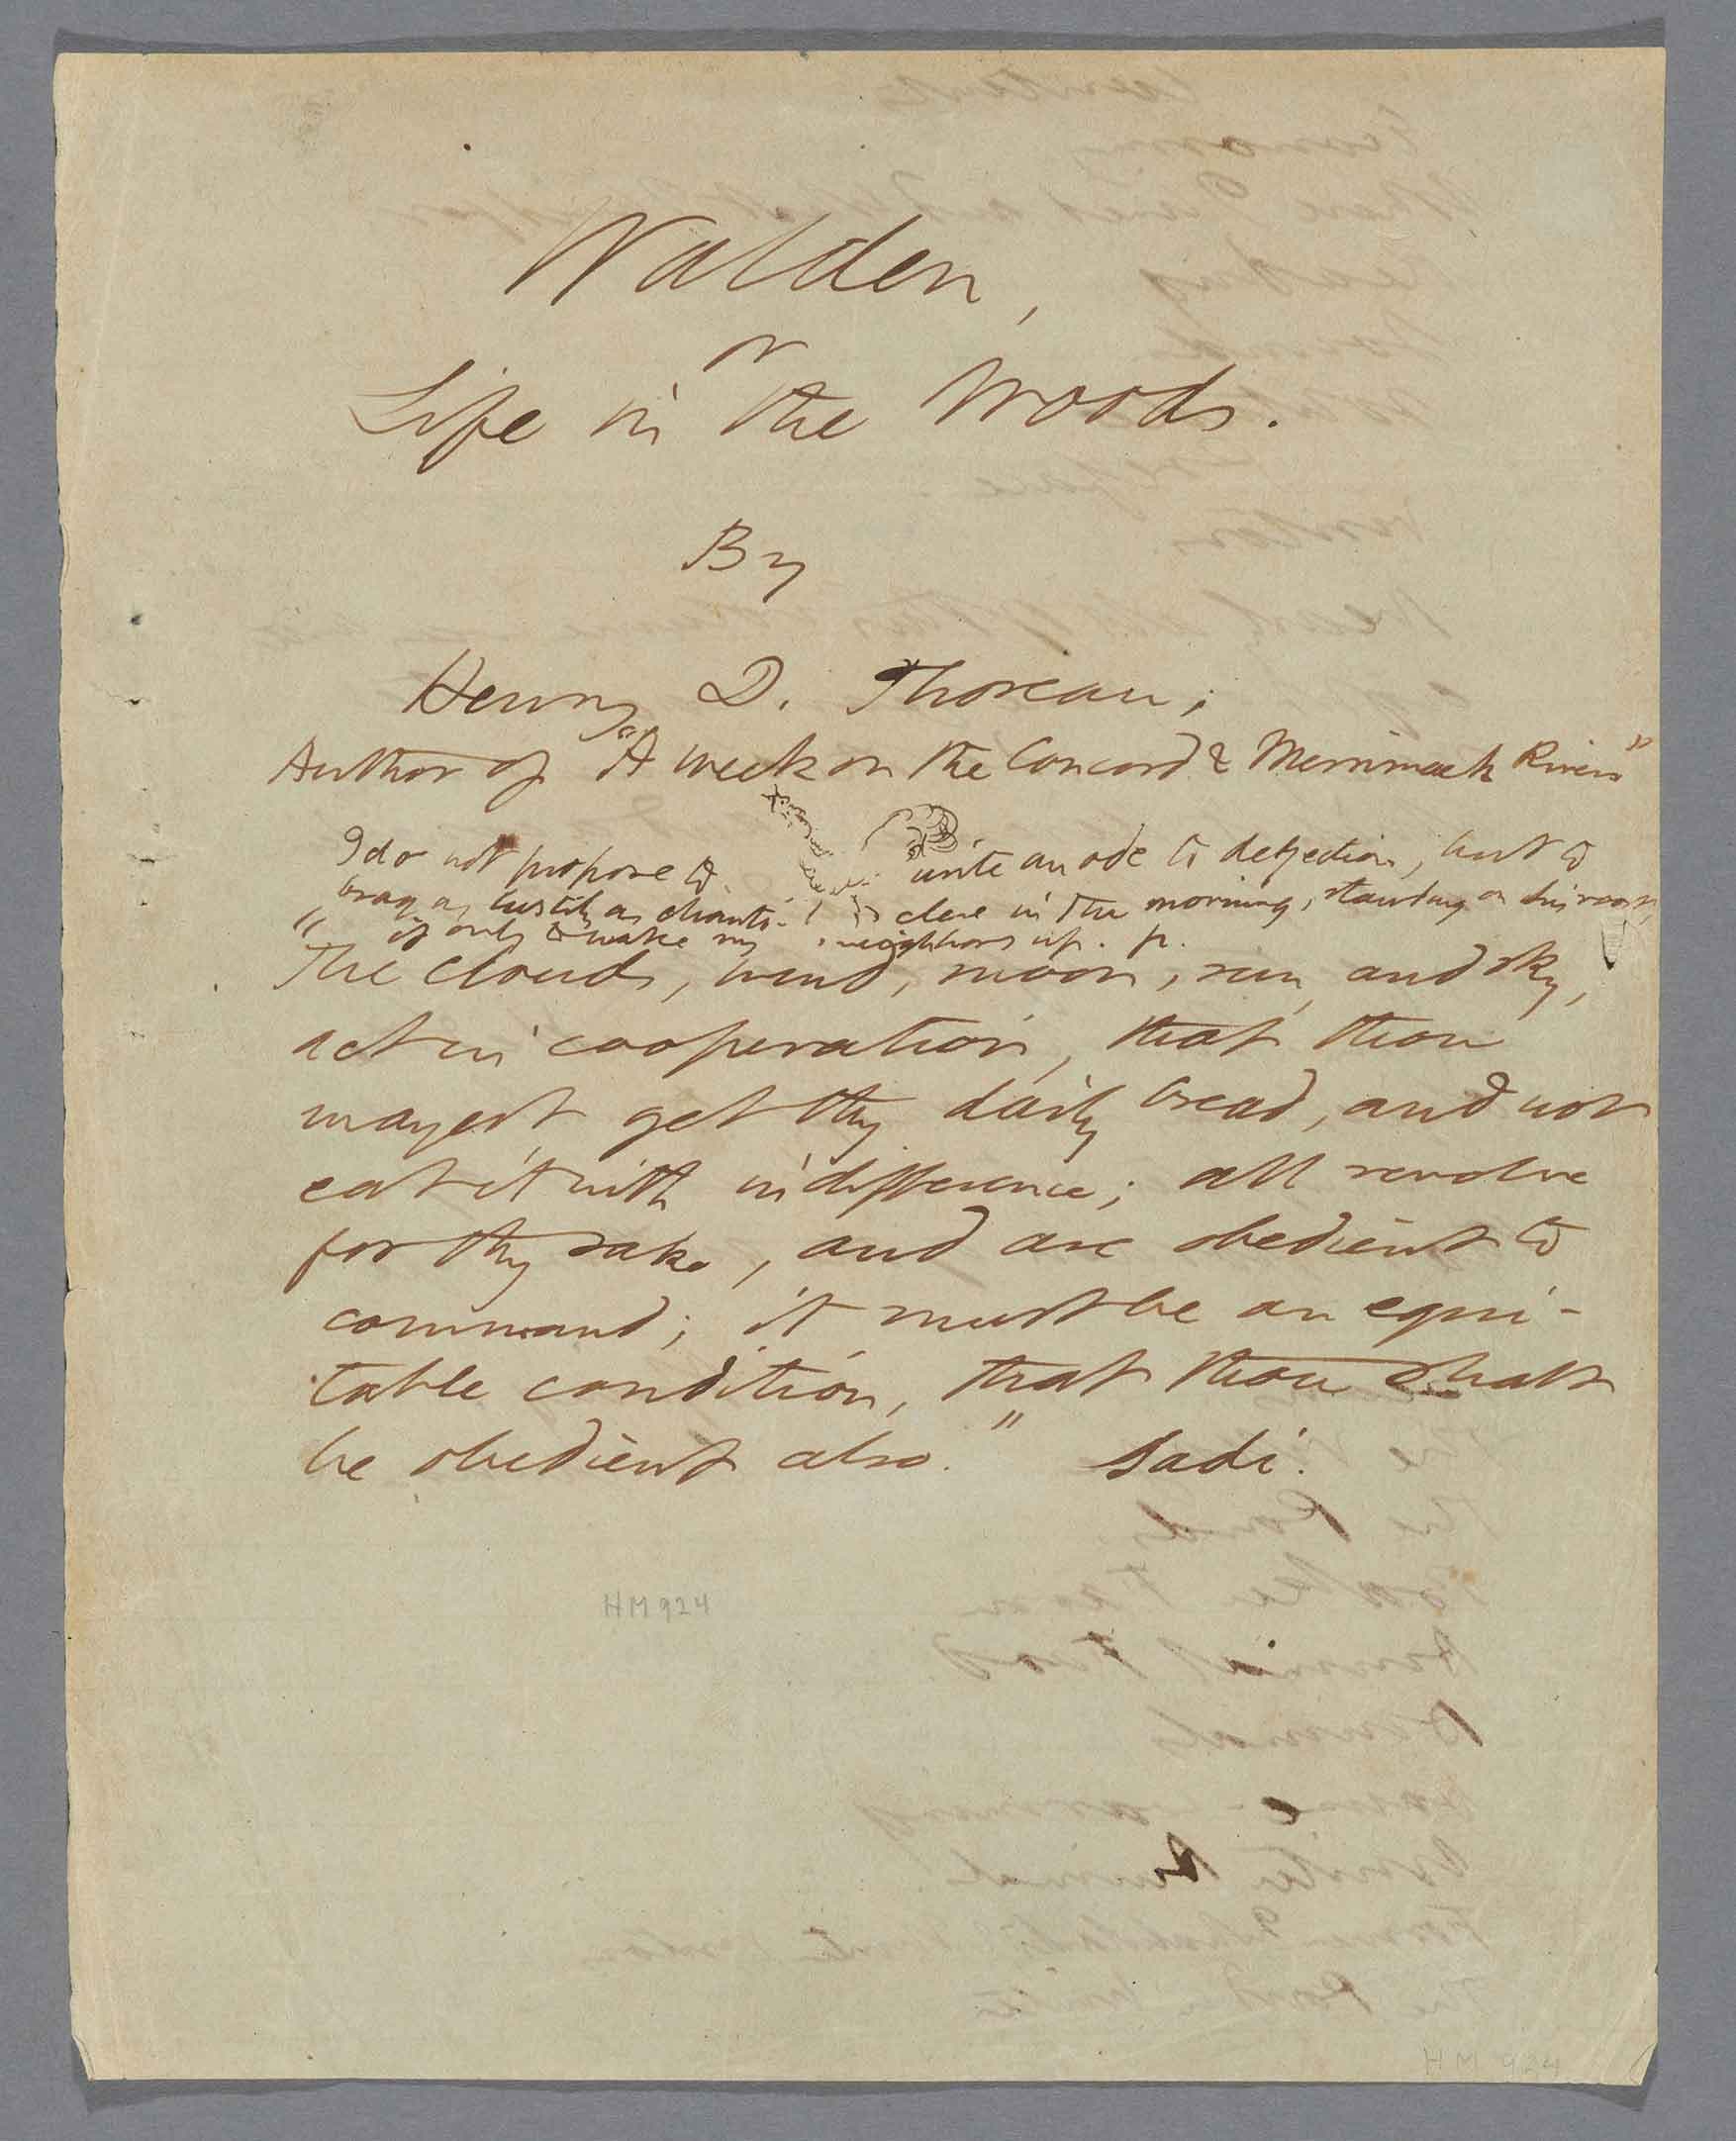 Walden,
or
Life in the Woods.
By
Henry D. Thoreau;
Author of "A Week on the Concord & Merrimack Rivers"
I do not propose to write an ode to dejection, but to
brag as lustily as chanticleer in the morning, standing on his roost,
if only to wake my neighbors up. p.
"The clouds, wind, moon, sun, and sky,
act in cooperation, that thou
mayest get thy daily bread, and not
eat it with indifference; all revolve
for thy sake, and are obedient to
command; it must be an equi-
table condition, that thou shalt
be obedient also." Sadi.
HM 924
HM 924